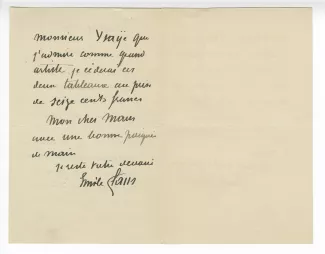 Monsieur Ysaÿe que
j'admire comme grand
artiste je cèderai ces
deux tableaux au prix
de seize cents francs
Mon cher Maus
avec une bonne poignée
de main
je reste votre dévoué
Emile Claus